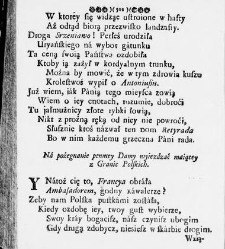 W ktorey się widząc uſtroione w haſty
Aż odtąd biorą przezwiſko landzaſty.
Droga Srzeniawo! Perłeś urodziła
Uryańſkiego ná wybor gátunku
Tu cenę ſwoią Páńſtwá ozdobiłá
Ktoby ią zażył w kordyalnym trunku,
Można by mowić, że w tym zdrowia kuſzu
Krolewſtwo wypił o
Już wiem, iák Pánią tego mieyſca zową
Wiem o iey cnotach, rozumie, dobroći
Tu jáſmużnicy złote rybki łowią,
Nikt z proźną ręką od niey nie powroći,
Słuſznie ktoś názwał ten dom Retyrada
Bo w nim każdemu grzeczna Páni rada.
Ná pożegnanie pewney Damy wyjeżdżać maiącey
z Granic Polſkich.
Y Nátoż cię to, Francya obráła
Ambaſadorem, godny káwálerze?
Żeby nam Polſka puſtkámi zoſtáłá,
Kiedy ozdobę iey, twoy guſt wybierze,
Swoy kráy bogaciſz, nász czyniſz ubogim
Gdy drugą zdobycz, nieſieſz w ſkárbie drogim.